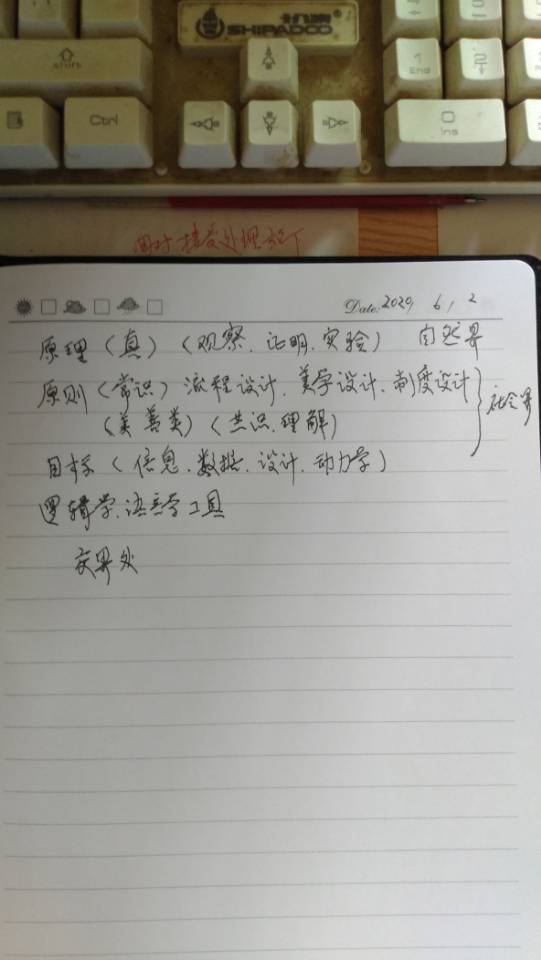 SHIPADOO®
shift
Ctrl
1
End
2
0
Ins
同时接受处理放下
Date: 2020, 6, 2
原理（真）（观察、证明、实验） 自然界
原则（常识）流程设计、美学设计、制度设计
（美 善类）（共识、理解）
社会界
目标（信息、数据、设计、动力学）
逻辑学、语言学工具
交界处